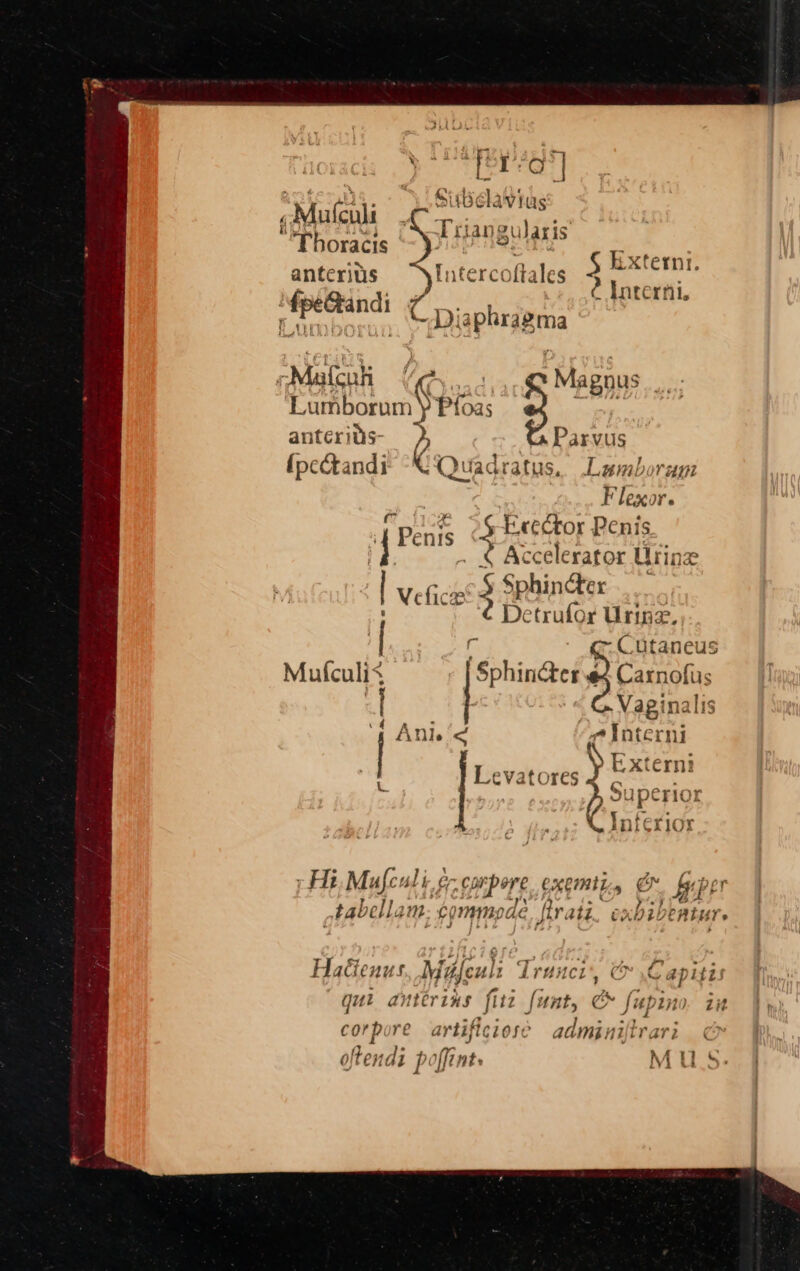 [190]
Musculi Thoracis anteriùs spectandi
Subclavius
Triangularis
Intercostales { Externi. Interni,
Diaphragma
Musculi Lumborum anteriùs spectandi
Psoas { Magnus Parvus
Quadratus, Lumborum Flexor.
Musculi
Penis { Erector Penis. Accelerator Urinæ
Vesicæ { Sphincter Detrusor Urinæ,
Ani.
Sphincter { Cutaneus Carnosus Vaginalis
Levatores { Interni Externi Superior Inferior
Hi Musculi è corpore exemti, & super
tabellam commodè strati exhibentur.
Hactenus, Musculi Trunci, & Capitis
qui anteriùs siti sunt, & supino in
corpore artificiosè administrari &
ostendi possint.
MUS-